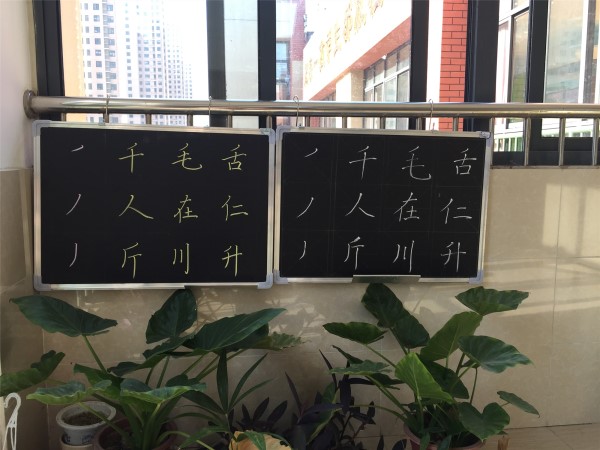 ㇒ 千 毛 舌
丿 人 在 仁
丿 斤 川 升
㇒ 千 毛 舌
丿 人 在 仁
丿 斤 川 升